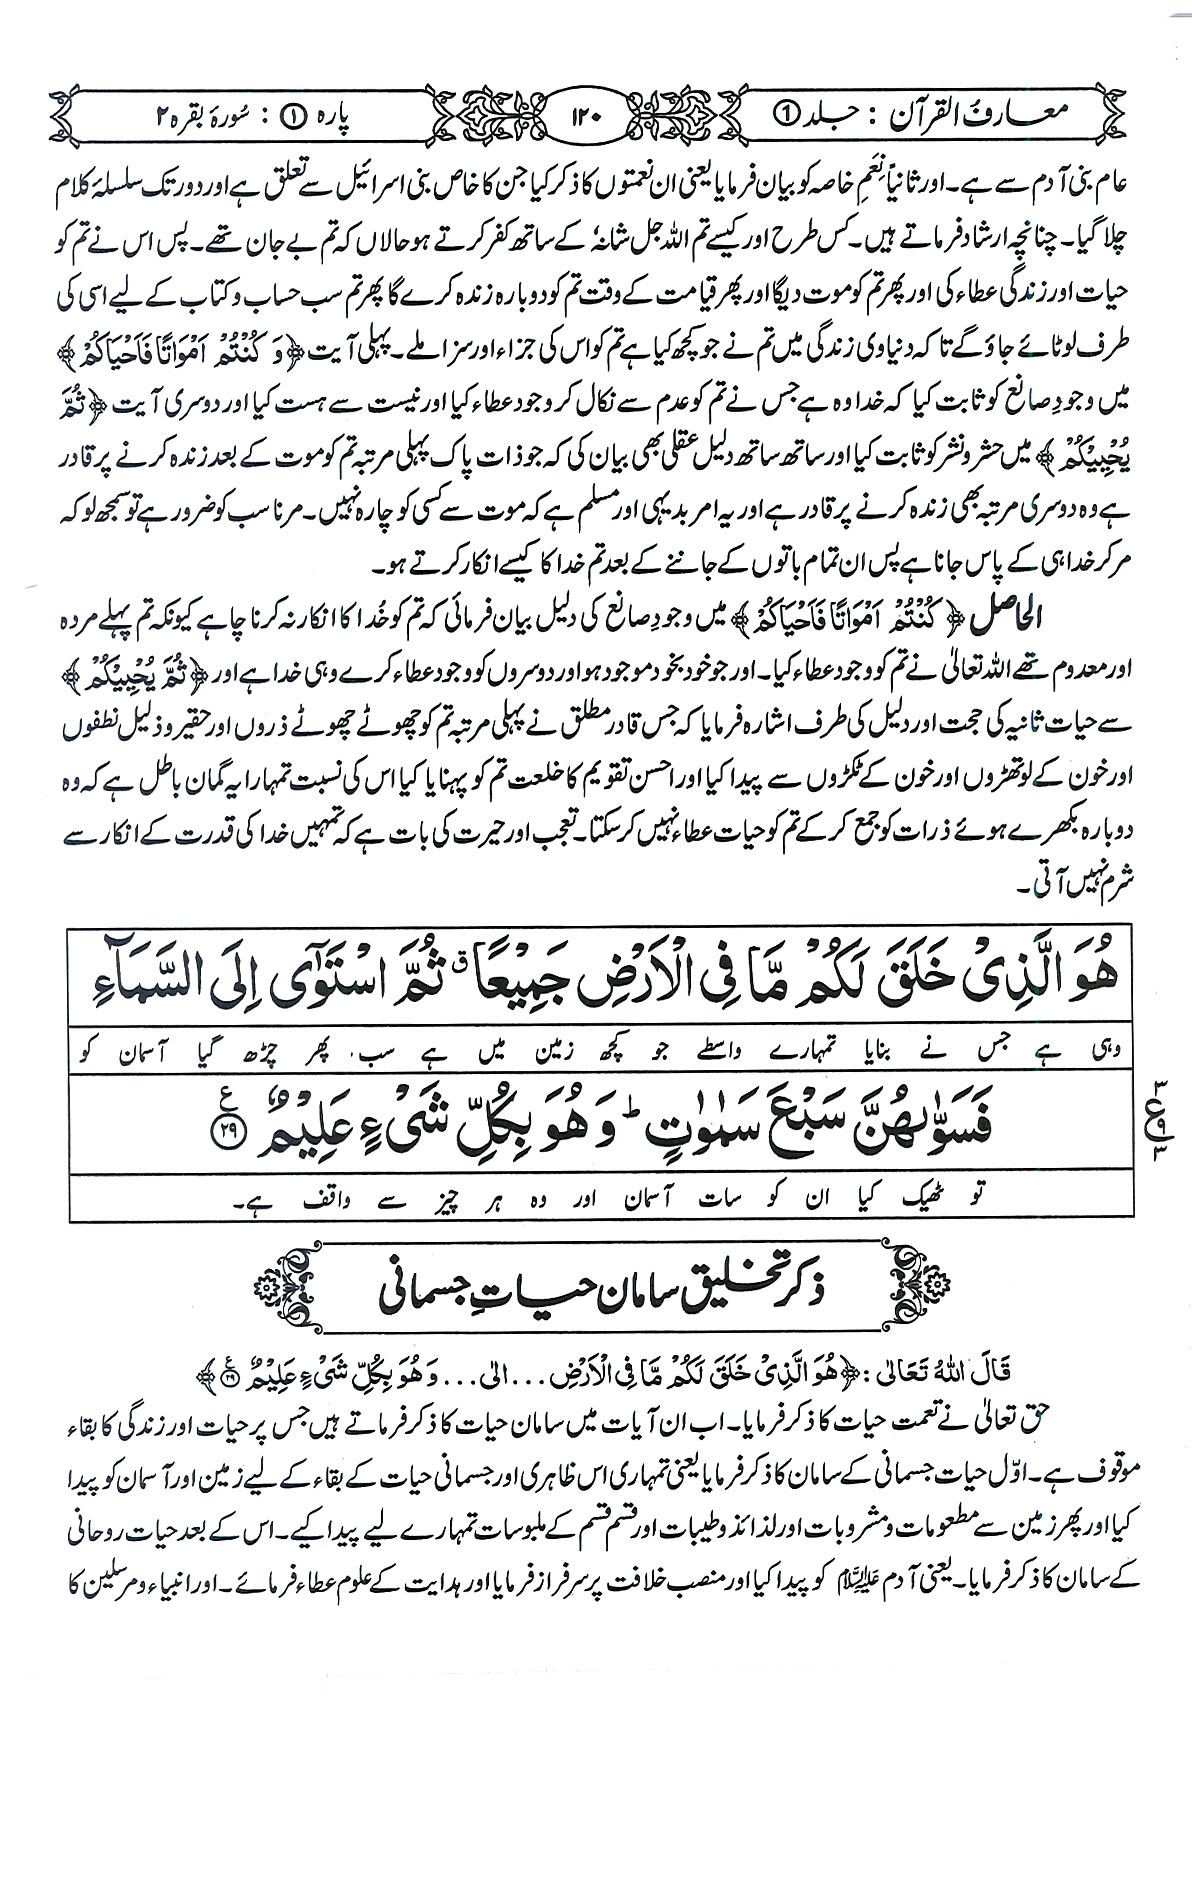 معارف القرآن : جلد ①
۱۲۰
پارہ ① : سُورۂ بقرہ ۲
عام بنی آدم سے ہے۔ اور ثانیاً نِعَمِ خاصہ کو بیان فرمایا یعنی ان نعمتوں کا ذکر کیا جن کا خاص بنی اسرائیل سے تعلق ہے اور دور تک سلسلۂ کلام
چلا گیا۔ چنانچہ ارشاد فرماتے ہیں۔ کس طرح اور کیسے تم اللہ جل شانہٗ کے ساتھ کفر کرتے ہو حالاں کہ تم بے جان تھے۔ پس اس نے تم کو
حیات اور زندگی عطاء کی اور پھر تم کو موت دیگا اور پھر قیامت کے وقت تم کو دوبارہ زندہ کرے گا پھر تم سب حساب و کتاب کے لیے اسی کی
طرف لوٹائے جاؤ گے تاکہ دنیاوی زندگی میں تم نے جو کچھ کیا ہے تم کو اس کی جزاء اور سزا ملے۔ پہلی آیت ﴿وَ كُنْتُمْ اَمْوَاتًا فَاَحْيَاكُمْ﴾
میں وجودِ صانع کو ثابت کیا کہ خدا وہ ہے جس نے تم کو عدم سے نکال کر وجود عطاء کیا اور نیست سے ہست کیا اور دوسری آیت ﴿ثُمَّ
يُحْيِيْكُمْ﴾ میں حشر و نشر کو ثابت کیا اور ساتھ ساتھ دلیل عقلی بھی بیان کی کہ جو ذات پاک پہلی مرتبہ تم کو موت کے بعد زندہ کرنے پر قادر
ہے وہ دوسری مرتبہ بھی زندہ کرنے پر قادر ہے اور یہ امر بدیہی اور مسلم ہے کہ موت سے کسی کو چارہ نہیں۔ مرنا سب کو ضرور ہے تو سمجھ لو کہ
مر کر خدا ہی کے پاس جانا ہے پس ان تمام باتوں کے جاننے کے بعد تم خدا کا کیسے انکار کرتے ہو۔
الحاصل ﴿كُنْتُمْ اَمْوَاتًا فَاَحْيَاكُمْ﴾ میں وجودِ صانع کی دلیل بیان فرمائی کہ تم کو خُدا کا انکار نہ کرنا چاہے کیونکہ تم پہلے مردہ
اور معدوم تھے اللہ تعالیٰ نے تم کو وجود عطاء کیا۔ اور جو خود بخود موجود ہو اور دوسروں کو وجود عطاء کرے وہی خدا ہے اور ﴿ثُمَّ يُحْيِيْكُمْ﴾
سے حیات ثانیہ کی حجت اور دلیل کی طرف اشارہ فرمایا کہ جس قادر مطلق نے پہلی مرتبہ تم کو چھوٹے چھوٹے ذروں اور حقیر و ذلیل نطفوں
اور خون کے لوتھڑوں اور خون کے ٹکڑوں سے پیدا کیا اور احسن تقویم کا خلعت تم کو پہنایا کیا اس کی نسبت تمہارا یہ گمان باطل ہے کہ وہ
دوبارہ بکھرے ہوئے ذرات کو جمع کر کے تم کو حیات عطاء نہیں کر سکتا۔ تعجب اور حیرت کی بات ہے کہ تمہیں خدا کی قدرت کے انکار سے
شرم نہیں آتی۔
هُوَ الَّذِيْ خَلَقَ لَكُمْ مَّا فِي الْاَرْضِ جَمِيْعًا ق ثُمَّ اسْتَوٰٓى اِلَى السَّمَآءِ
وہی ہے جس نے بنایا تمہارے واسطے جو کچھ زمین میں ہے سب، پھر چڑھ گیا آسمان کو
فَسَوّٰىهُنَّ سَبْعَ سَمٰوٰتٍ ؕ وَ هُوَ بِكُلِّ شَيْءٍ عَلِيْمٌ ﴿۲۹﴾ ع
۳
ع
۹
۳
تو ٹھیک کیا ان کو سات آسمان اور وہ ہر چیز سے واقف ہے۔
ذکر تخلیق سامان حیاتِ جسمانی
قَالَ اللّٰهُ تَعَالٰى : ﴿هُوَ الَّذِيْ خَلَقَ لَكُمْ مَّا فِي الْاَرْضِ ... الٰى ... وَ هُوَ بِكُلِّ شَيْءٍ عَلِيْمٌ ۲۹﴾
حق تعالیٰ نے نعمت حیات کا ذکر فرمایا۔ اب ان آیات میں سامان حیات کا ذکر فرماتے ہیں جس پر حیات اور زندگی کا بقاء
موقوف ہے۔ اوّل حیات جسمانی کے سامان کا ذکر فرمایا یعنی تمہاری اس ظاہری اور جسمانی حیات کے بقاء کے لیے زمین اور آسمان کو پیدا
کیا اور پھر زمین سے مطعومات و مشروبات اور لذائذ و طیبات اور قسم قسم کے ملبوسات تمہارے لیے پیدا کیے۔ اس کے بعد حیات روحانی
کے سامان کا ذکر فرمایا۔ یعنی آدم علیہ السلام کو پیدا کیا اور منصب خلافت پر سرفراز فرمایا اور ہدایت کے علوم عطاء فرمائے۔ اور انبیاء و مرسلین کا